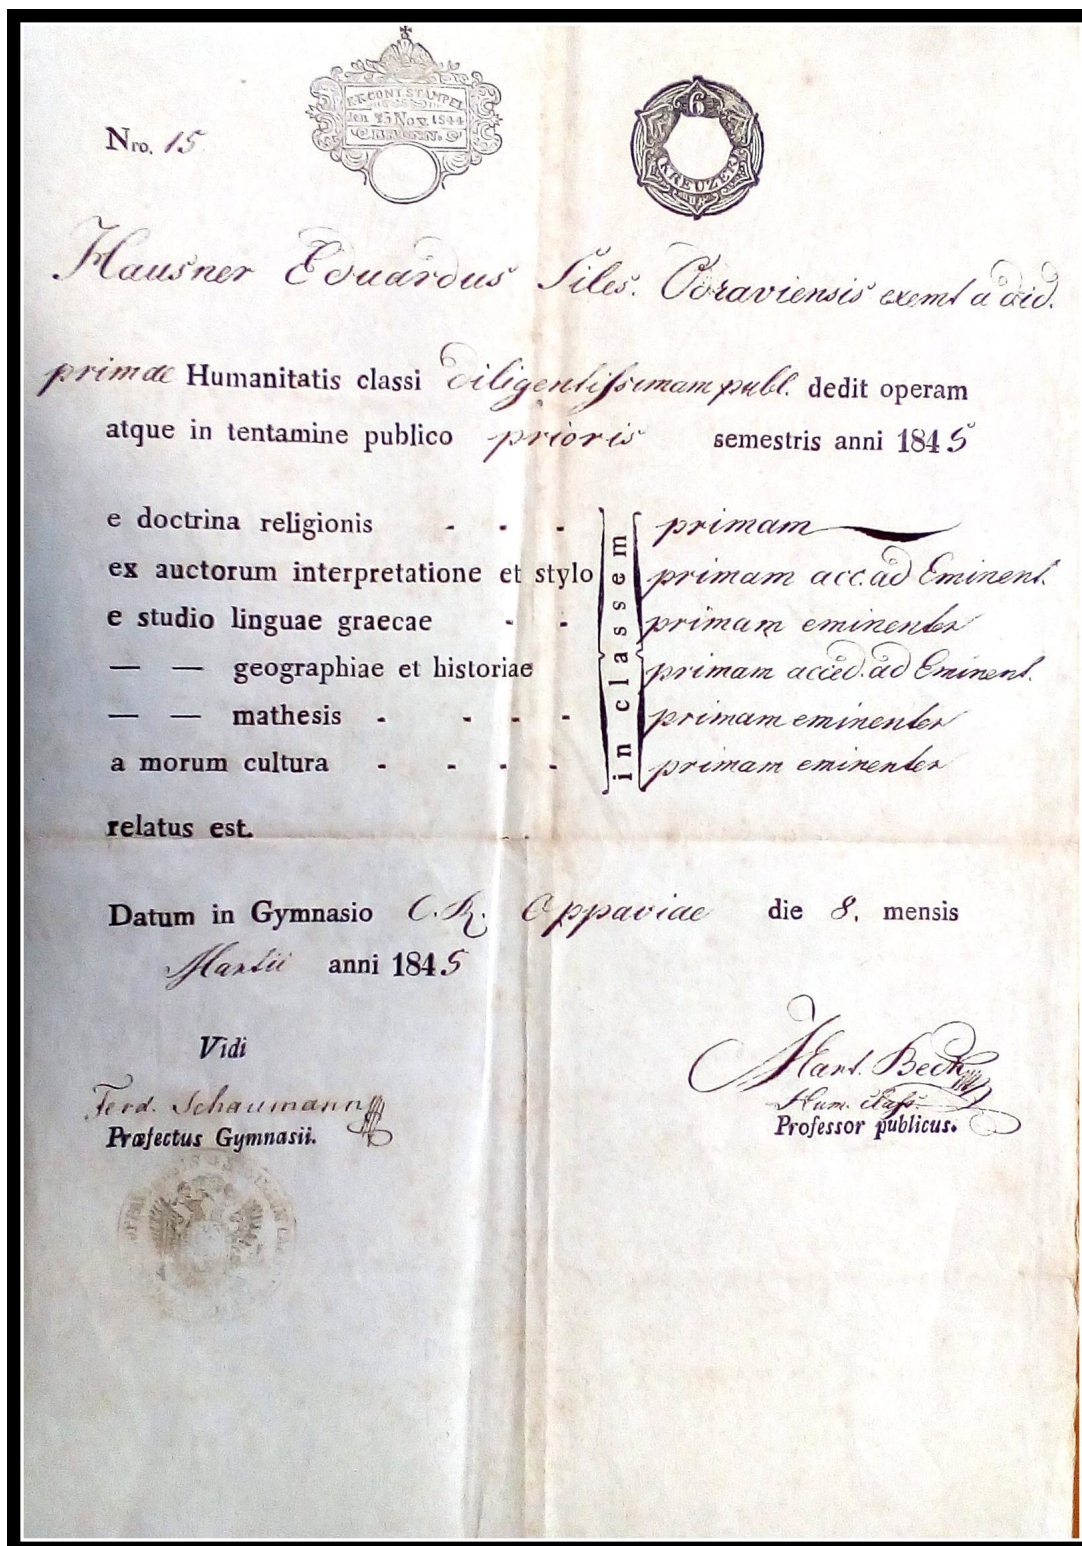 K.K. CONT. STÄMPEL
den 25 Nov. 1844
6
KREUZER
Nro. 15
Hausner Eduardus Siles. Odraviensis exemt a did.
primae Humanitatis classi diligentissimam publ. dedit operam
atque in tentamine publico prioris semestris anni 1845
e doctrina religionis - - - primam
ex auctorum interpretatione et stylo primam acc. ad Eminent.
e studio linguae graecae - - primam eminenter
— — geographiae et historiae primam acced. ad Eminent.
— — mathesis - - - - primam eminenter
a morum cultura - - - - primam eminenter
in classem
relatus est.
Datum in Gymnasio C. R. Oppaviae die 8. mensis
Martii anni 1845
Vidi
Ferd. Schaumann
Præfectus Gymnasii.
Mart. Beck
Hum. class.
Professor publicus.